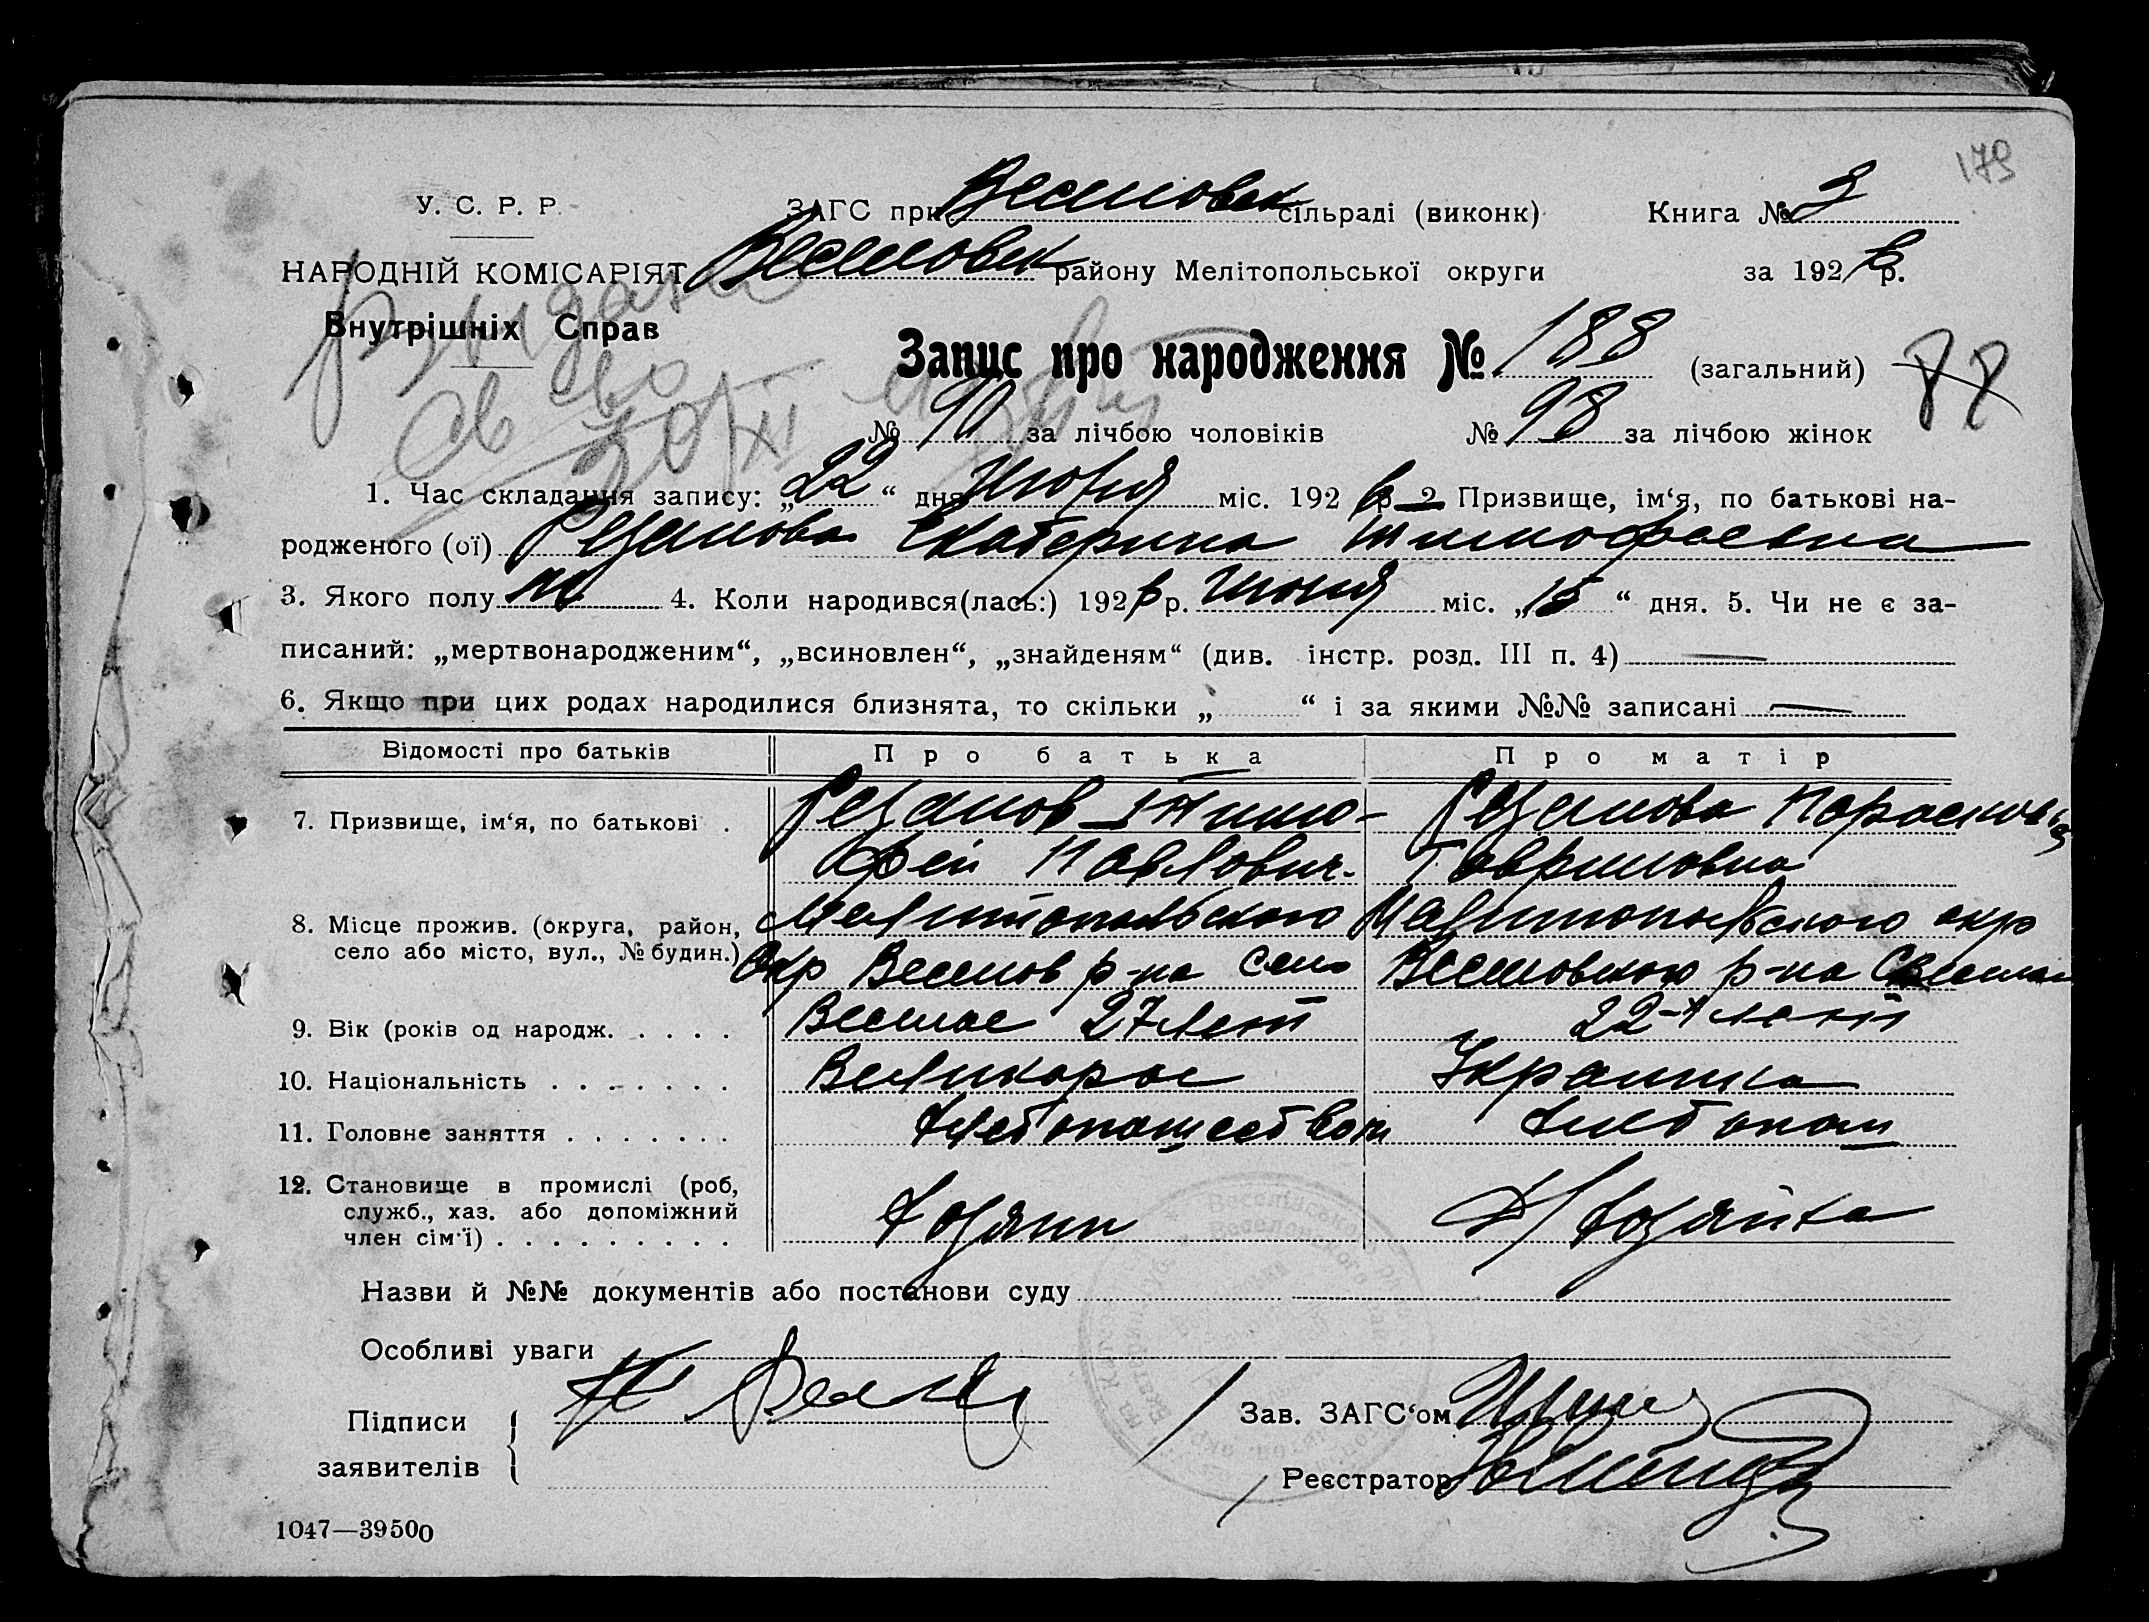 179
У. С. Р. Р. ЗАГС при Веселовск сільраді (виконк) Книга № 3
НАРОДНІЙ КОМІСАРІЯТ Веселовск району Мелітопольської округи за 1926 р.
Внутрішніх Справ
Запис про народження № 188 (загальний)
№ 90 за лічбою чоловіків № 98 за лічбою жінок
1. Час складання запису: „22“ дня Июня міс. 1926 р. 2 Призвище, ім‘я, по батькові на-
родженого (ої) Резанова Екатерина Тимофеевна
3. Якого полу ж 4. Коли народився(лась:) 1926 р. Июня міс. „15“ дня. 5. Чи не є за-
писаний: „мертвонародженим“, „всиновлен“, „знайденям“ (див. інстр. розд. III п. 4) —
6. Якщо при цих родах народилися близнята, то скільки „ “ і за якими №№ записані —
Відомості про батьків Про батька Про матір
7. Призвище, ім‘я, по батькові . Резанов Тимо- Резанова Парасковья
фей Павлович. Гавриловна
8. Місце прожив. (округа, район, Мелитопольского Мелитопольского окр
село або місто, вул., № будин.) Окр Веселов р-на село Веселовского р-на
9. Вік (років од народж. . . . . Веселое 27 лет 22-х лет
10. Національність . . . . . . . Великорос Украинка
11. Головне заняття . . . . . . . хлебопашеством хлебопаш
12. Становище в промислі (роб, Хозяин Д/Хозяйка
служб., хаз. або допоміжний
член сім‘ї) . . . . . . . . .
Назви й №№ документів або постанови суду
Особливі уваги
Підписи Зав. ЗАГС‘ом
заявителів Реєстратор
1047—39500